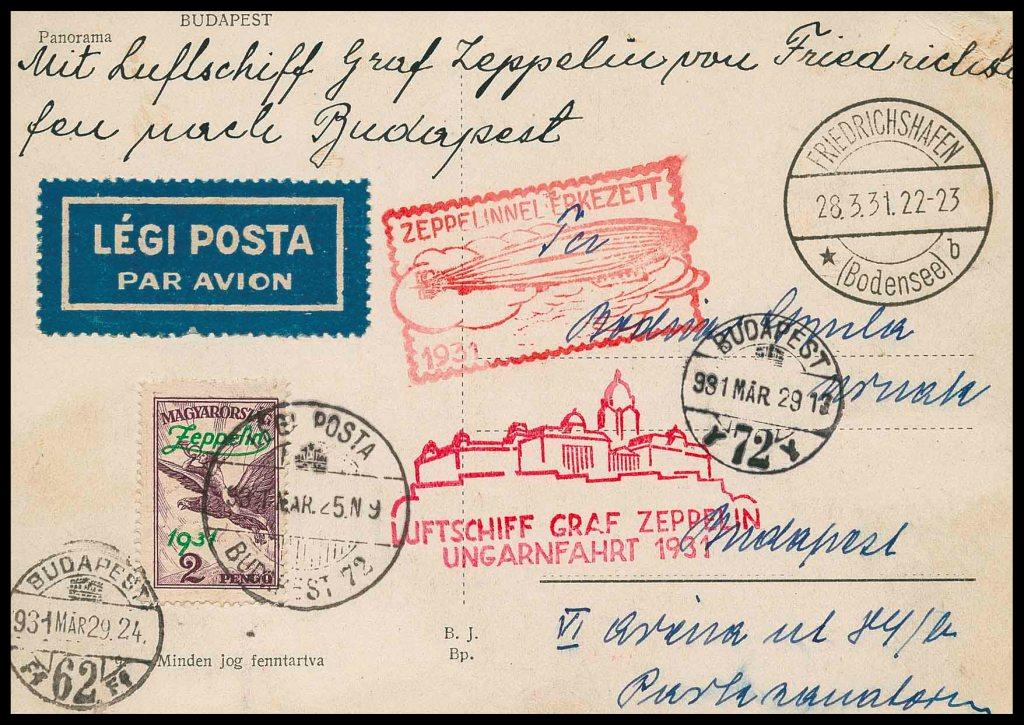 BUDAPEST
Panorama
Mit Luftschiff Graf Zeppelin von Friedrichsha
fen nach Budapest
FRIEDRICHSHAFEN
28.3.31.22-23
(Bodensee) b
LÉGI POSTA
PAR AVION
ZEPPELINNEL ÉRKEZETT
1931
BUDAPEST
931 MÁR 29 13
72
MAGYARORSZ
Zeppelin
1931
2 PENGŐ
LÉGI POSTA
MÁR. 25. N 9
BUDAPEST 72
LUFTSCHIFF GRAF ZEPPELIN
UNGARNFAHRT 1931
Budapest
VI Aréna út 84/b
BUDAPEST
931 MÁR 29. 24.
62
B. J.
Bp.
Minden jog fenntartva